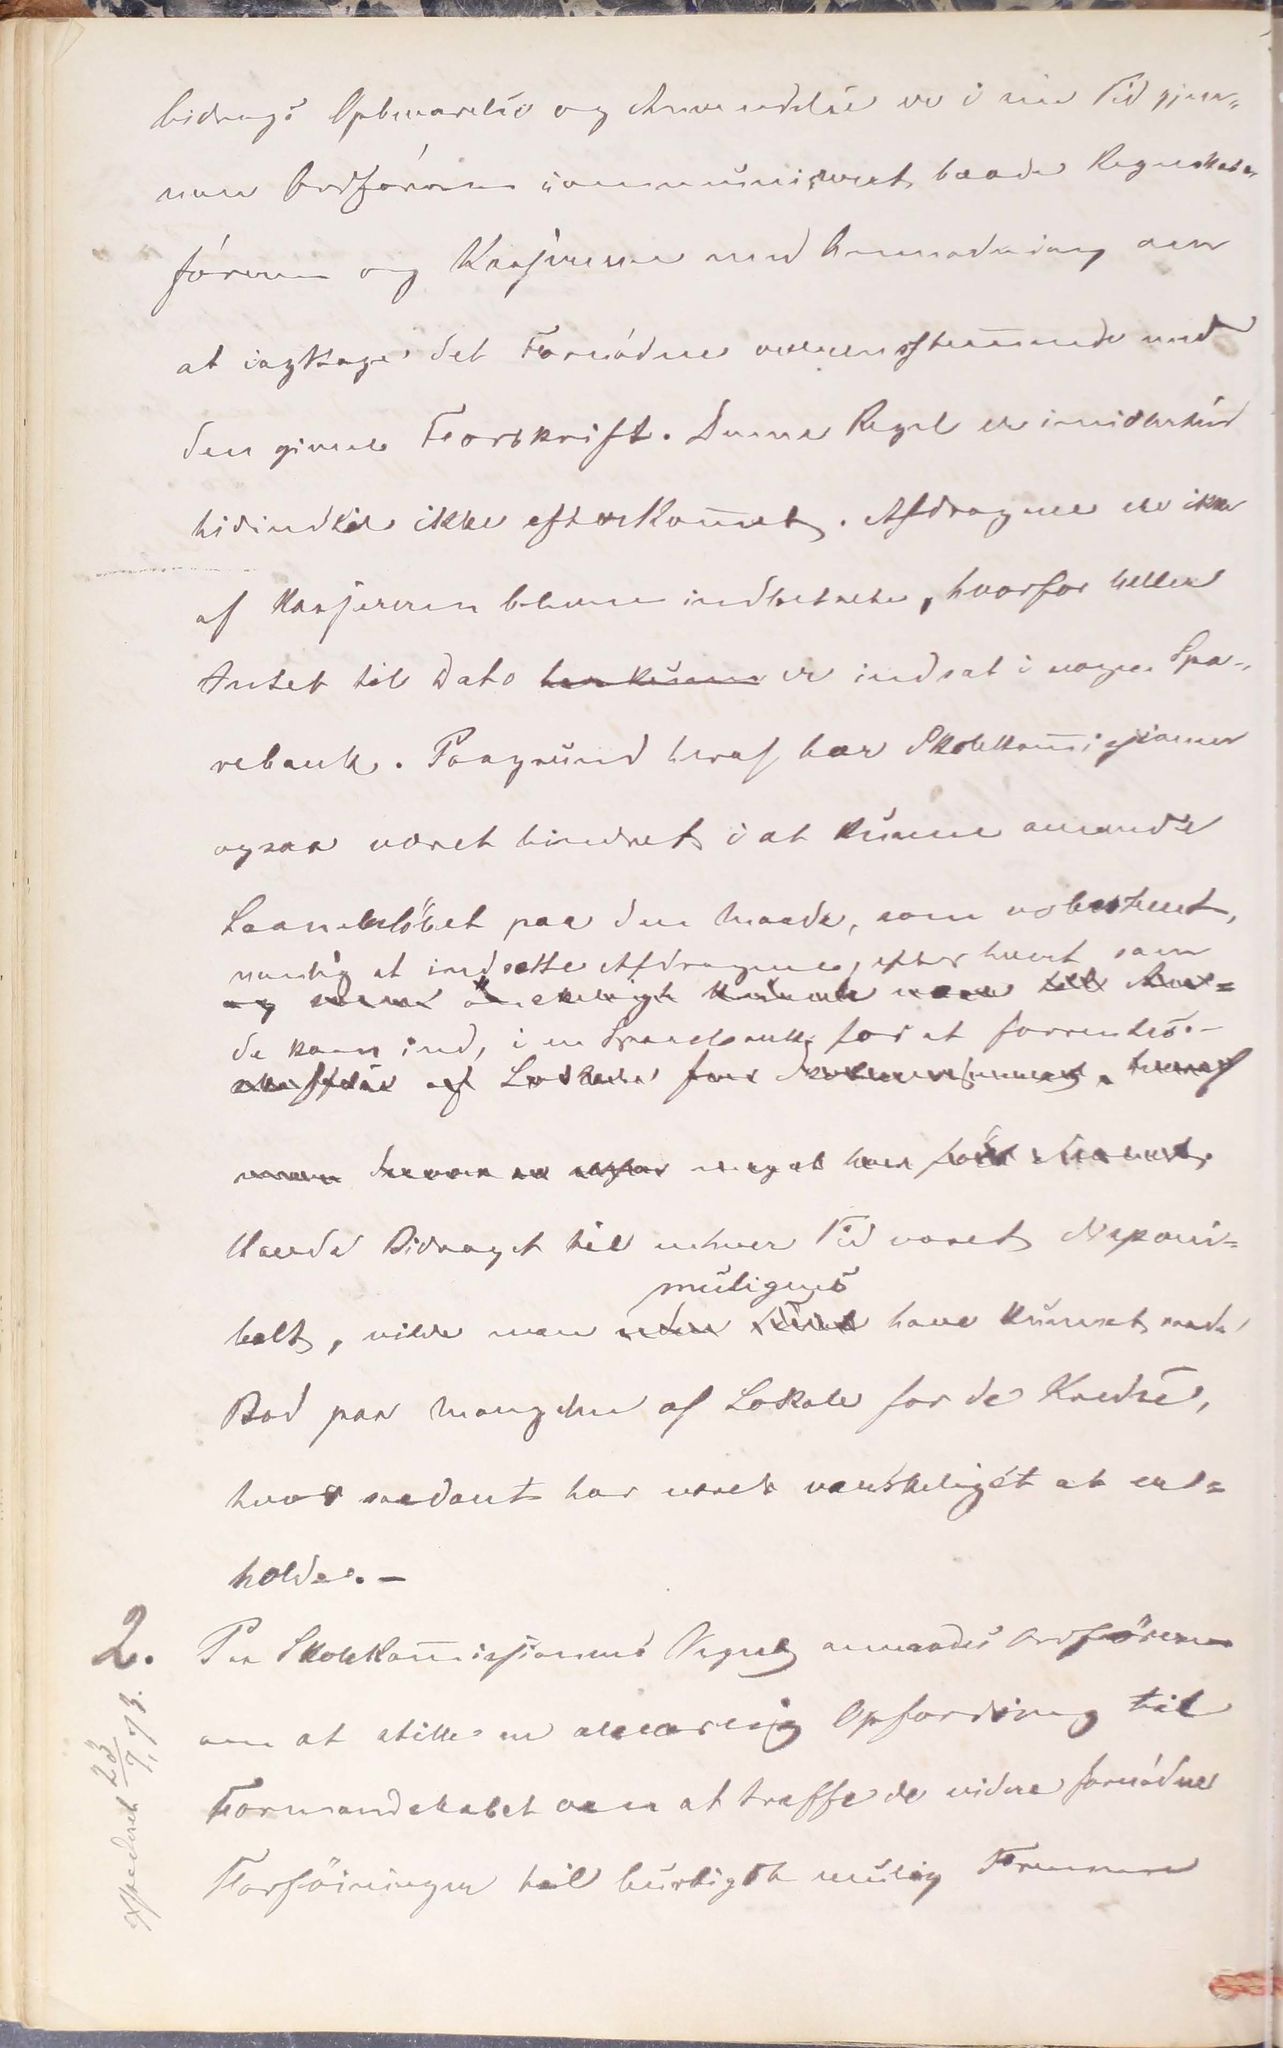 bidrags Opbevarelse og Anvendelse er i sin Tid gjen-
nem Ordføreren communiceret baade Regnskabs-
føreren og Kasjereren med Anmodning om
at iagttage det Fornødne overensstemmende med
den givne Forskrift. Denne Regel er imidlertid
hidindtil ikke efterkommet. Afdragene ere ikke
af Kasjereren blevne indbetalte, hvorfor heller
Intet til Dato har kunne er indsat i nogen Spa-
rebank. Paagrund heraf har Skolekommissionen
ogsaa været hindret i at kunne anvende
Laanebeløbet paa den Maade, som var bestemt,
nemlig at indsætte Afdragene, efter hvert som
og som til An-
de kom ind, i en Sparebank for at forrentes.-
skaffelse af Lokale for heraf
man
Havde Bidraget til enhver Tid været disponi-
muligens
belt, vilde man uden have kunnet raade
Bod paa Mangelen af Lokale for de Kredse,
hvor saadant har været vanskeligst at er-
holde.-
2. Paa Skolekommissionens Vegne anmodes Ordføreren
om at stille en alvorlig Opfordring til
Formandskabet om at træffe de videre fornødne
Forføininger til hurtigst mulig Fremme
expederet 23/7, 73.